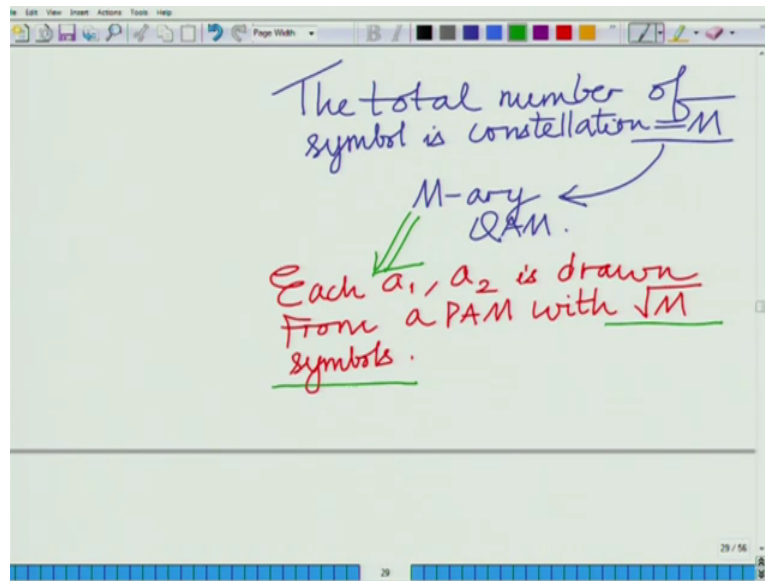 Edit View Insert Actions Tools Help
Page Width
The total number of
symbol is constellation = M
M-ary
QAM.
Each a1, a2 is drawn
From a PAM with √M
symbols.
29 / 56
29